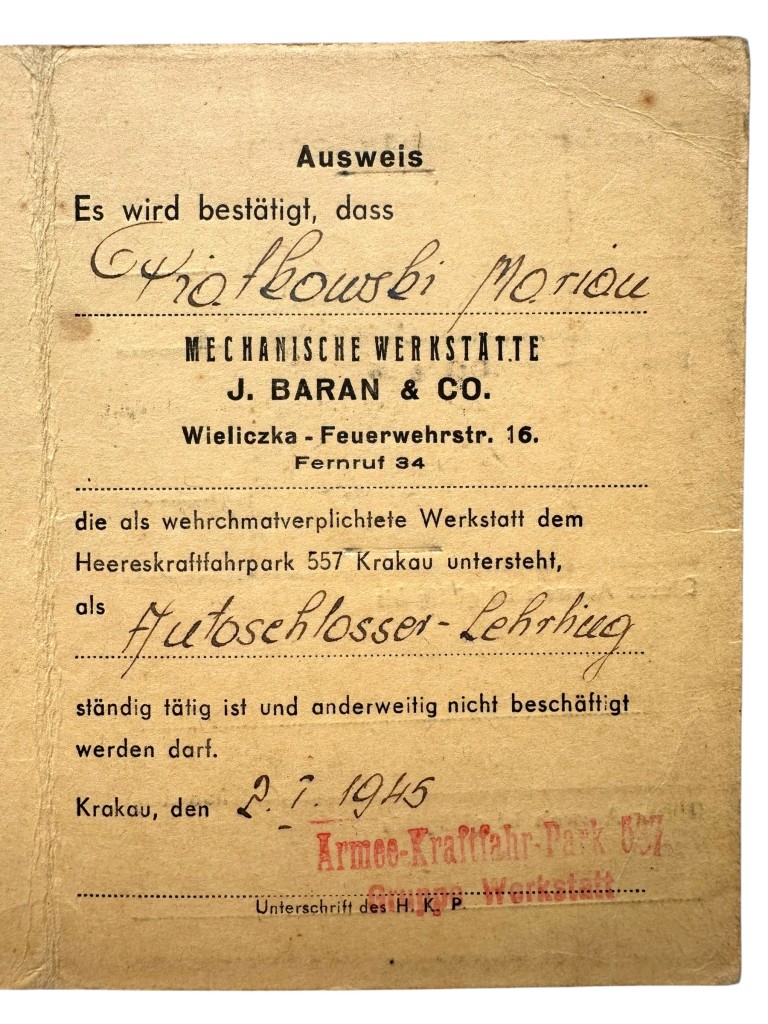 Ausweis
Es wird bestätigt, dass
Marian
MECHANISCHE WERKSTÄTTE
J. BARAN & CO.
Wieliczka - Feuerwehrstr. 16.
Fernruf 34
die als wehrchmatverplichtete Werkstatt dem
Heereskraftfahrpark 557 Krakau untersteht,
als Autoschlosser-Lehrling
ständig tätig ist und anderweitig nicht beschäftigt
werden darf.
Krakau, den 2. I. 1945
Armee-Kraftfahr-Park 557
Gruppe Werkstatt
Unterschrift des H. K. P.